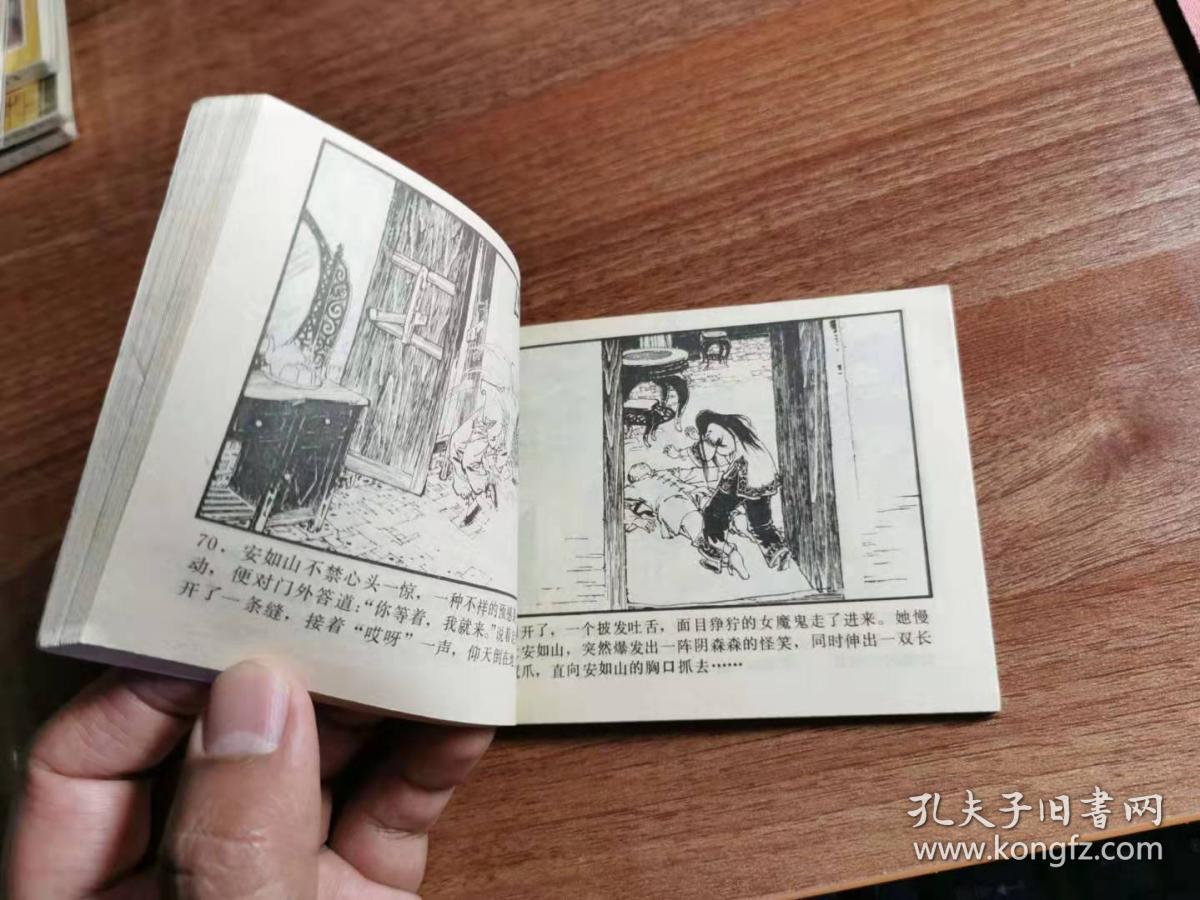 70．安如山不禁心头一惊，一种不样的预感
动，便对门外答道：“你等着，我就来。”说着
开了一条缝，接着“哎呀”一声，仰天倒在地
开了，一个披发吐舌，面目狰狞的女魔鬼走了进来。她慢
安如山，突然爆发出一阵阴森森的怪笑，同时伸出一双长
爪，直向安如山的胸口抓去……
孔夫子旧书网
www.kongfz.com